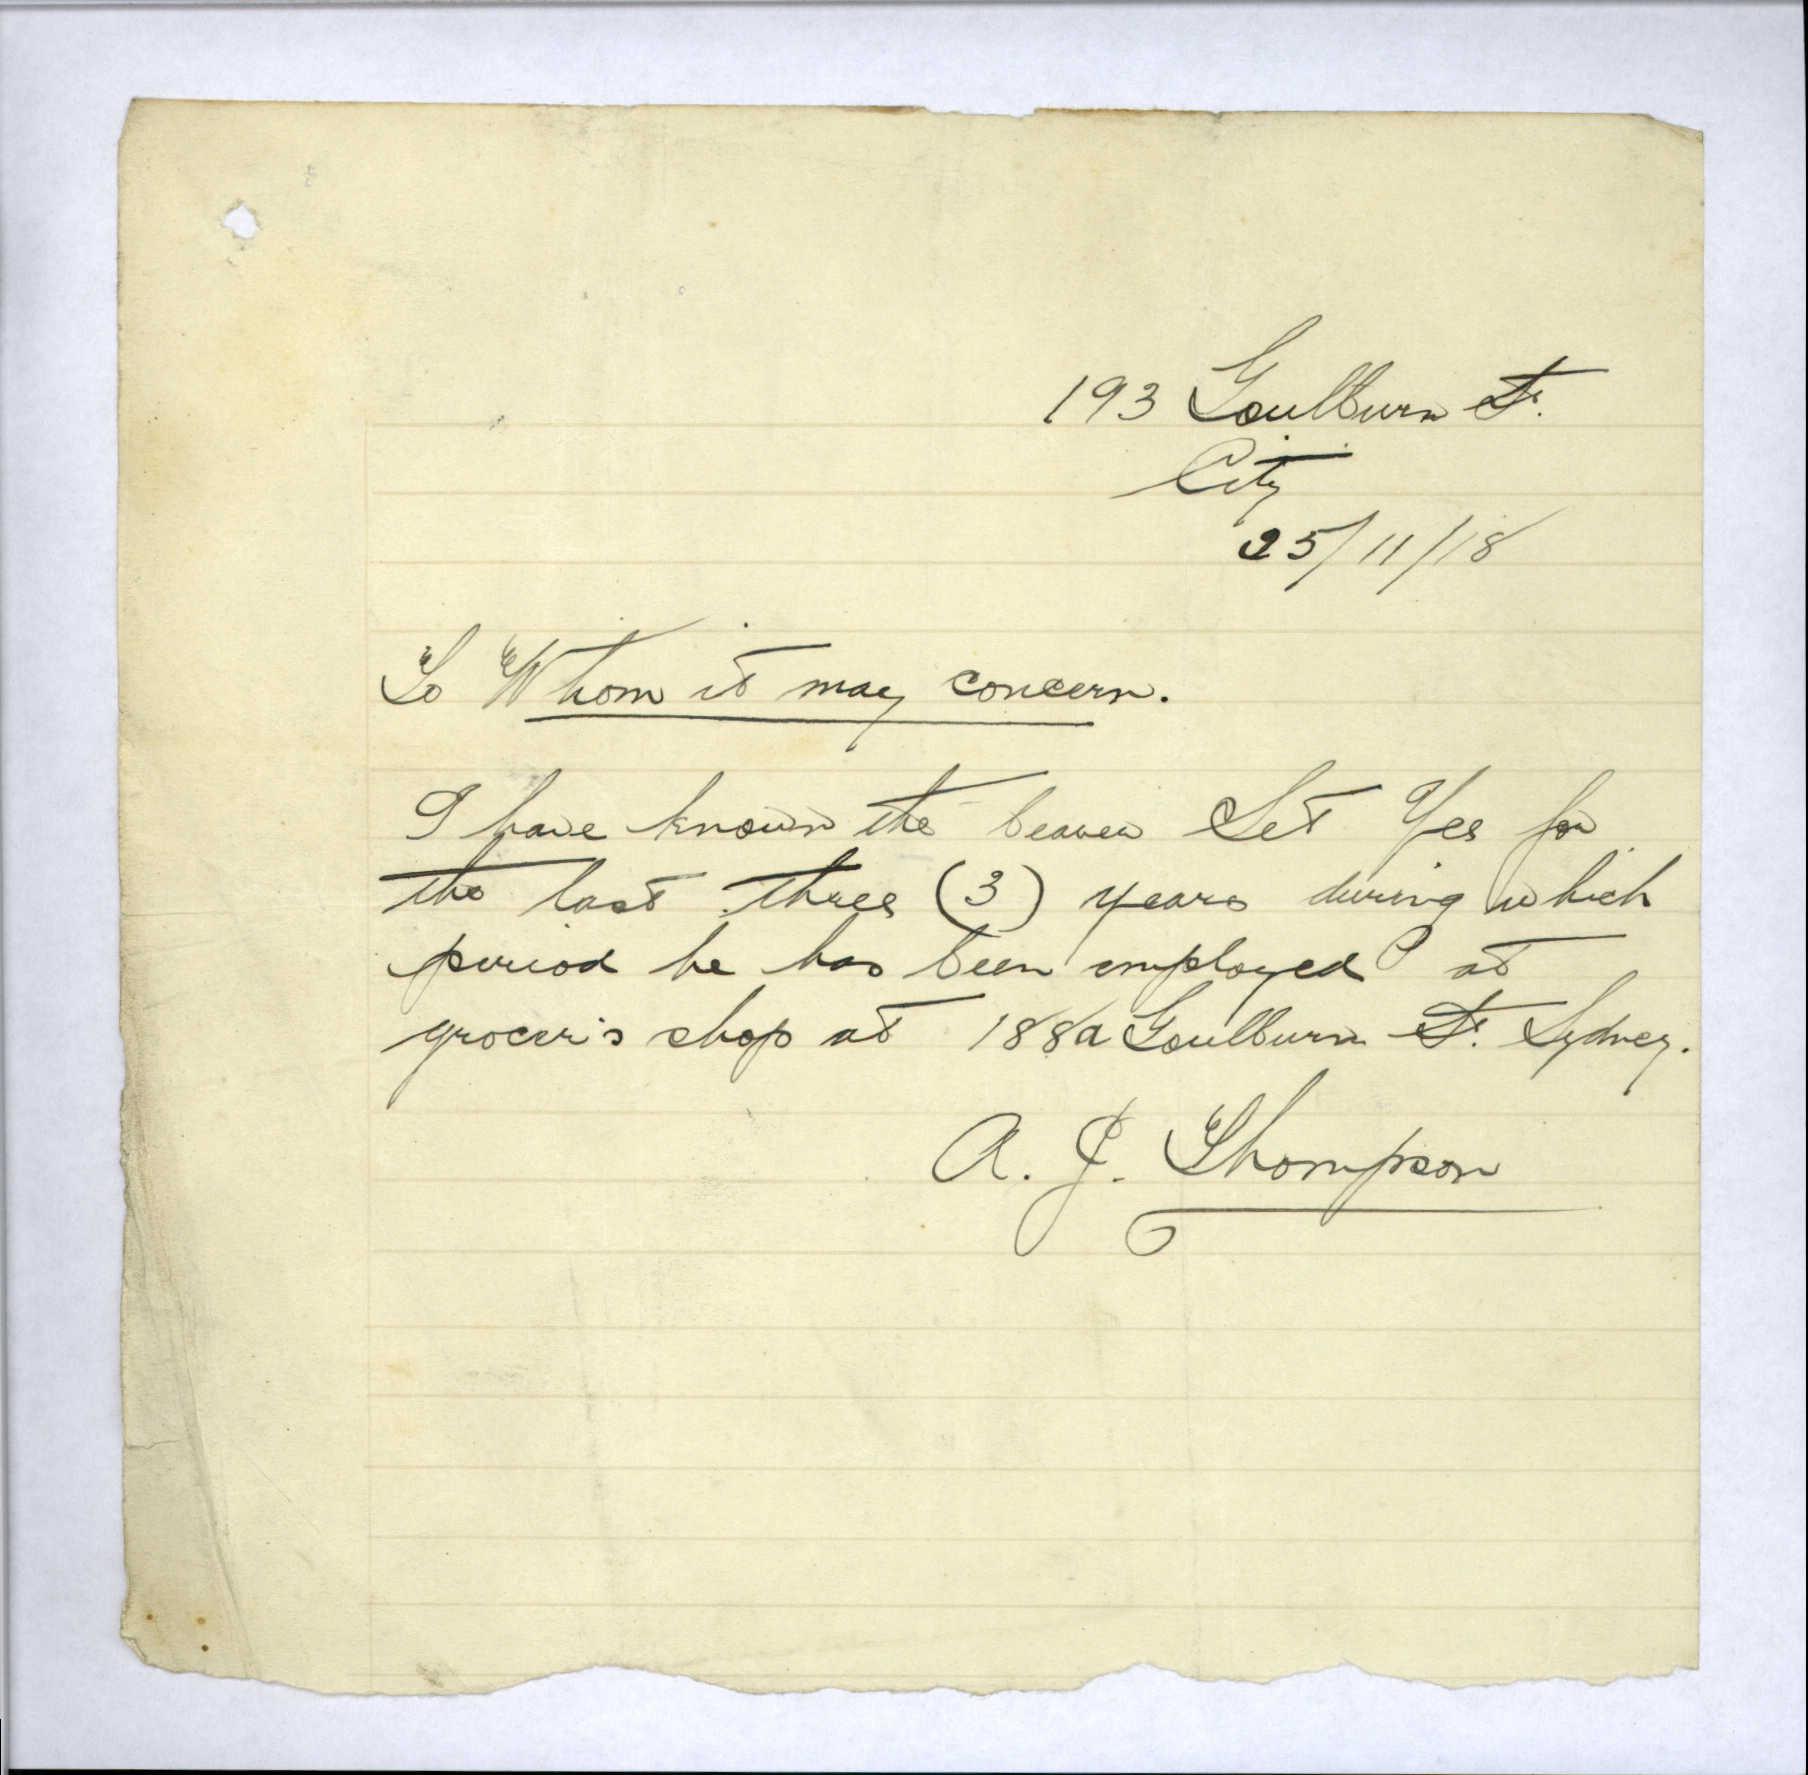 193 Goulburn St.
City
25/11/18
To Whom it may concern.
I have known the bearer Set Yee for
the last three (3) years during which
period he has been employed at
grocer's shop at 188a Goulburn St. Sydney.
A. J. Thompson